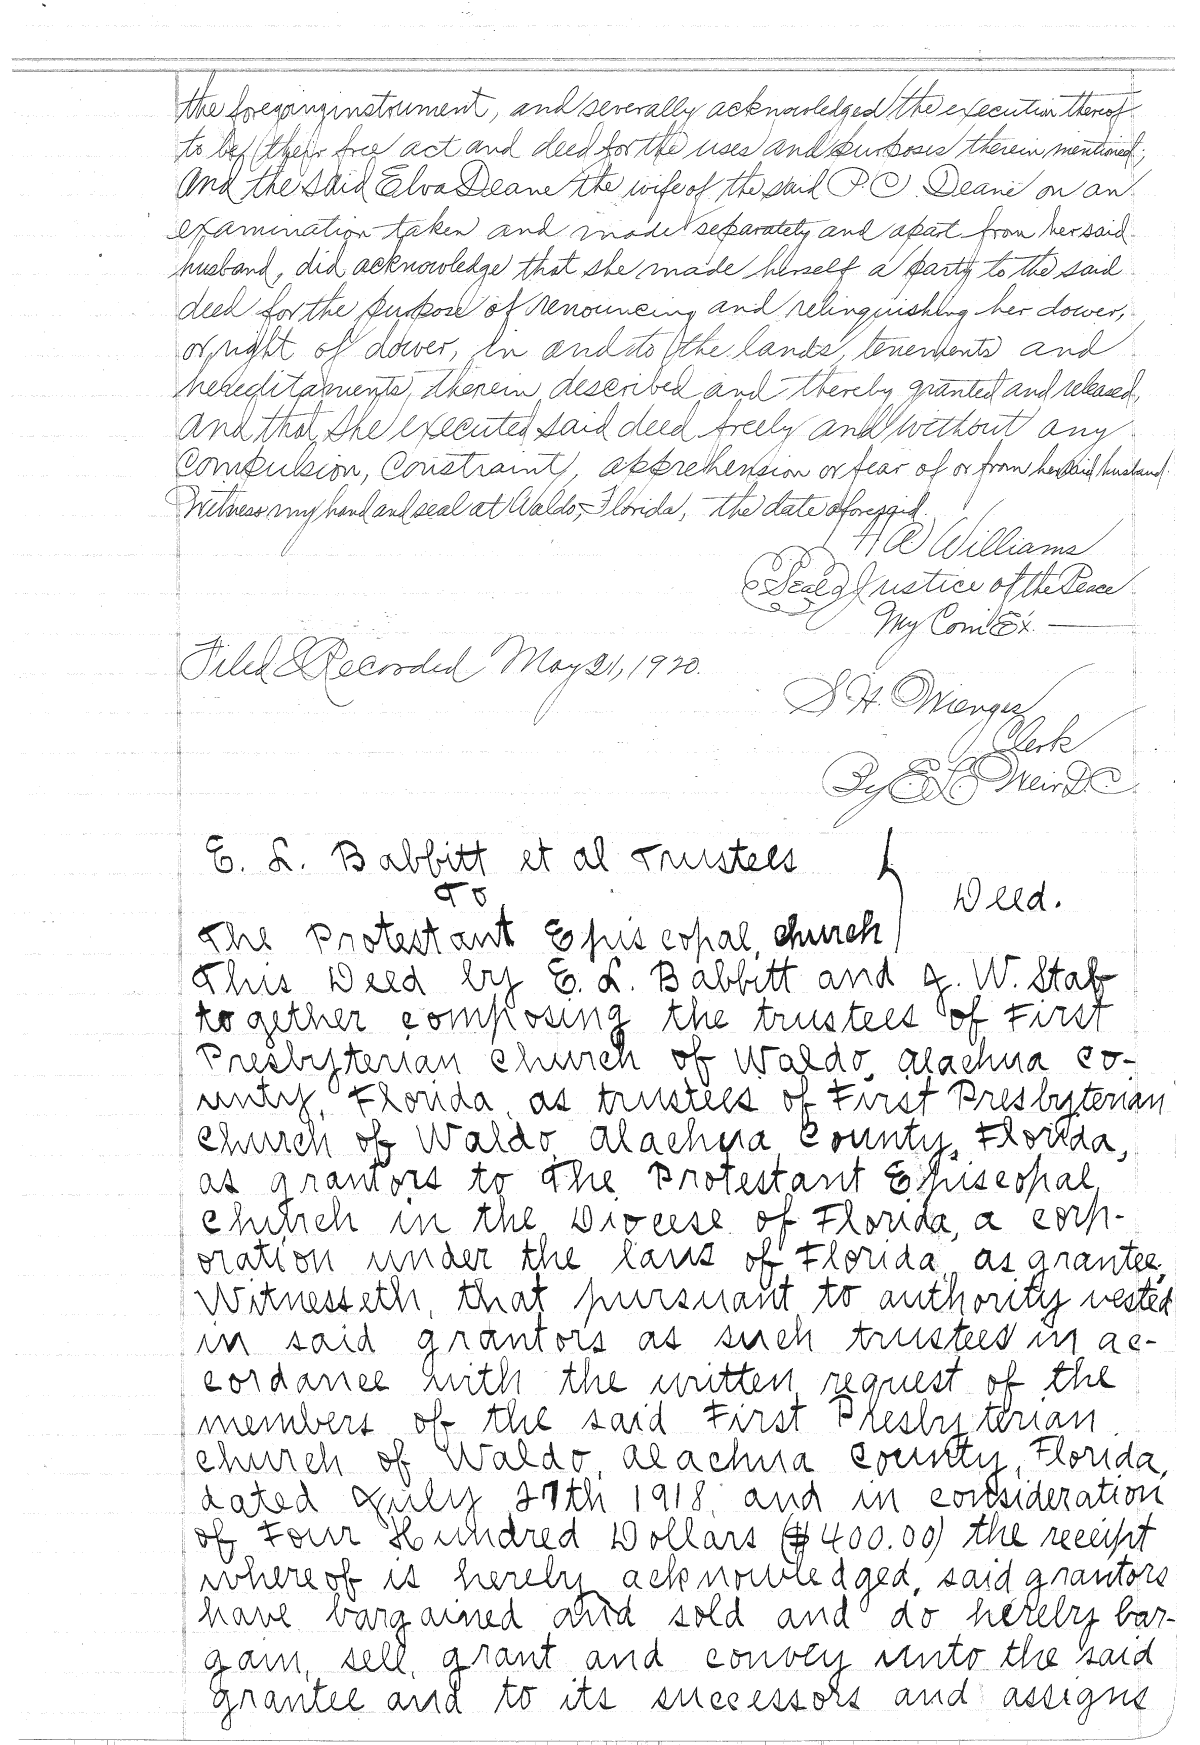 the foregoing instrument, and severally acknowledged the execution thereof
to be their free act and deed for the uses and purposes therein mentioned;
And the said Elva Deane the wife of the said P. C. Deane on an
examination taken and made separately and apart from her said
husband, did acknowledge that she made herself a party to the said
deed for the purpose of renouncing and relinquishing her dower,
or right of dower, in and to the lands, tenements and
hereditaments, therein described and thereby granted and released,
and that she executed said deed freely and without any
Compulsion, Constraint, apprehension or fear of or from her said husband.
Witness my hand and seal at Waldo, Florida, the date aforesaid.
Williams
Seal Justice of the Peace
My Com Ex. —
Filed & Recorded May 21, 1920.
S. H. Wienges
Clerk
By E L Weir D.C.
E. L. Babbitt et al Trustees
To
Deed.
The Protestant Episcopal, church
This Deed by E. L. Babbitt and J. W. Stab
together composing the trustees of First
Presbyterian church of Waldo, Alachua co-
unty, Florida, as trustees of First Presbyterian
church of Waldo, Alachua County, Florida,
as grantors to The Protestant Episcopal,
church in the Diocese of Florida, a corp-
oration under the laws of Florida, as grantee,
Witnesseth, that pursuant to authority vested
in said grantors as such trustees in ac-
cordance with the written request of the
members of the said First Presbyterian
church of Waldo, Alachua County, Florida,
dated July 27th 1918, and in consideration
of Four Hundred Dollars ($400.00) the receipt
whereof is hereby acknowledged, said grantors
have bargained and sold and do hereby bar-
gain, sell, grant and convey unto the said
grantee and to its successors and assigns